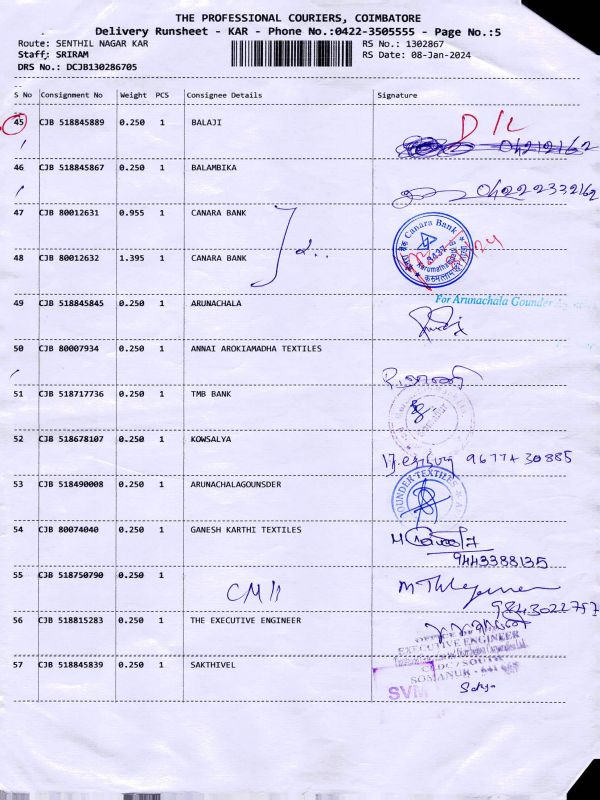 THE PROFESSIONAL COURIERS, COIMBATORE
Delivery Runsheet - KAR - Phone No.:0422-3505555 - Page No.:5
Route: SENTHIL NAGAR KAR RS No.: 1302867
Staff: SRIRAM RS Date: 08-Jan-2024
DRS No.: DCJB130286705
S No Consignment No Weight PCS Consignee Details Signature
45 CJB 518845889 0.250 1 BALAJI D/L
46 CJB 518845867 0.250 1 BALAMBIKA 04222332162
47 CJB 80012631 0.955 1 CANARA BANK
Canara Bank
48 CJB 80012632 1.395 1 CANARA BANK
For Arunachala Gounder
49 CJB 518845845 0.250 1 ARUNACHALA
50 CJB 80007934 0.250 1 ANNAI AROKIAMADHA TEXTILES
51 CJB 518717736 0.250 1 TMB BANK
52 CJB 518678107 0.250 1 KOWSALYA 9677430885
53 CJB 518490008 0.250 1 ARUNACHALAGOUNSDER
GOUNDER TEXTILES
54 CJB 80074040 0.250 1 GANESH KARTHI TEXTILES
9443388135
55 CJB 518750790 0.250 1
CM11
9843022757
56 CJB 518815283 0.250 1 THE EXECUTIVE ENGINEER
OFFICE OF THE
EXECUTIVE ENGINEER
SOMANUR - 641 668
57 CJB 518845839 0.250 1 SAKTHIVEL
SVM
Sathya